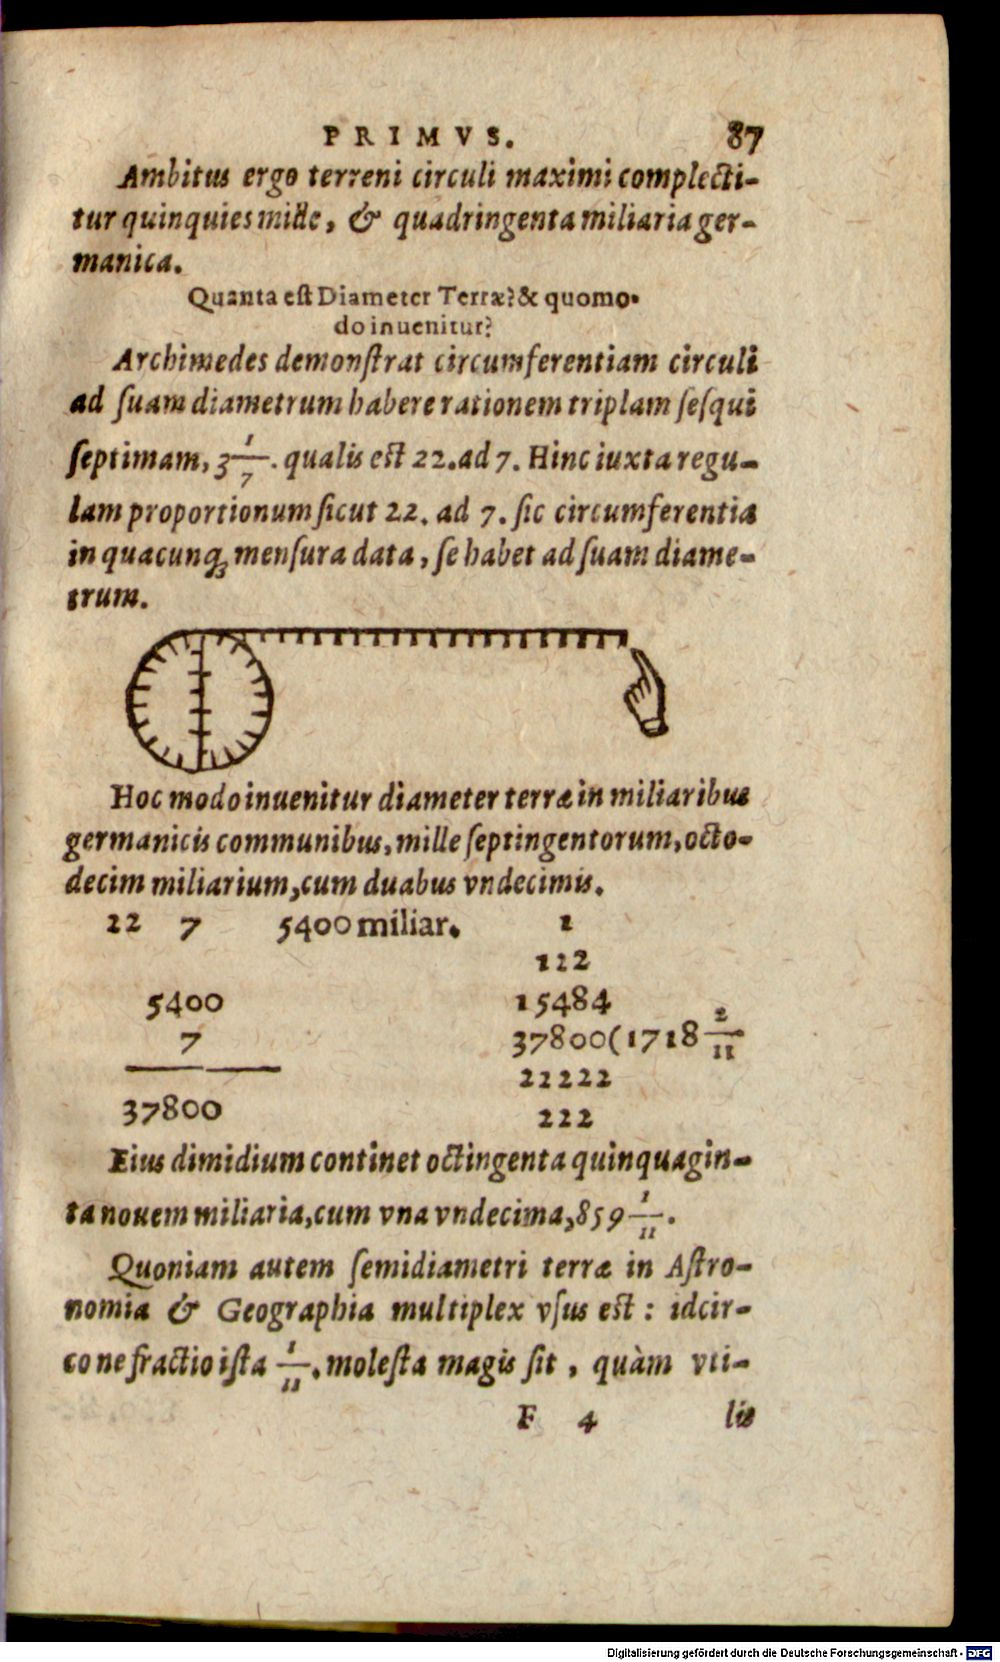 PRIMVS. 87
Ambitus ergo terreni circuli maximi complecti-
tur quinquies mille, & quadringenta miliaria ger-
manica.
Quanta est Diameter Terræ? & quomo-
do inuenitur?
Archimedes demonſtrat circumferentiam circuli
ad ſuam diametrum habere rationem triplam ſeſqui
ſeptimam, 3 1/7. qualis est 22. ad 7. Hinc iuxta regu-
lam proportionum ſicut 22. ad 7. ſic circumferentia
in quacunq; menſura data, ſe habet ad ſuam diame-
trum.
Hoc modo inuenitur diameter terræ in miliaribus
germanicis communibus, mille ſeptingentorum, octo-
decim miliarium, cum duabus vndecimis.
22 7 5400 miliar. 1
122
5400 15484
7 37800(1718 2/11
22222
37800 222
Eius dimidium continet octingenta quinquagin-
ta nouem miliaria, cum vna vndecima, 859 1/11.
Quoniam autem ſemidiametri terræ in Aſtro-
nomia & Geographia multiplex vſus est: idcir-
co ne fractio iſta 1/11. moleſta magis ſit, quàm vti-
F 4 lis
Digitalisierung gefördert durch die Deutsche Forschungsgemeinschaft - DFG